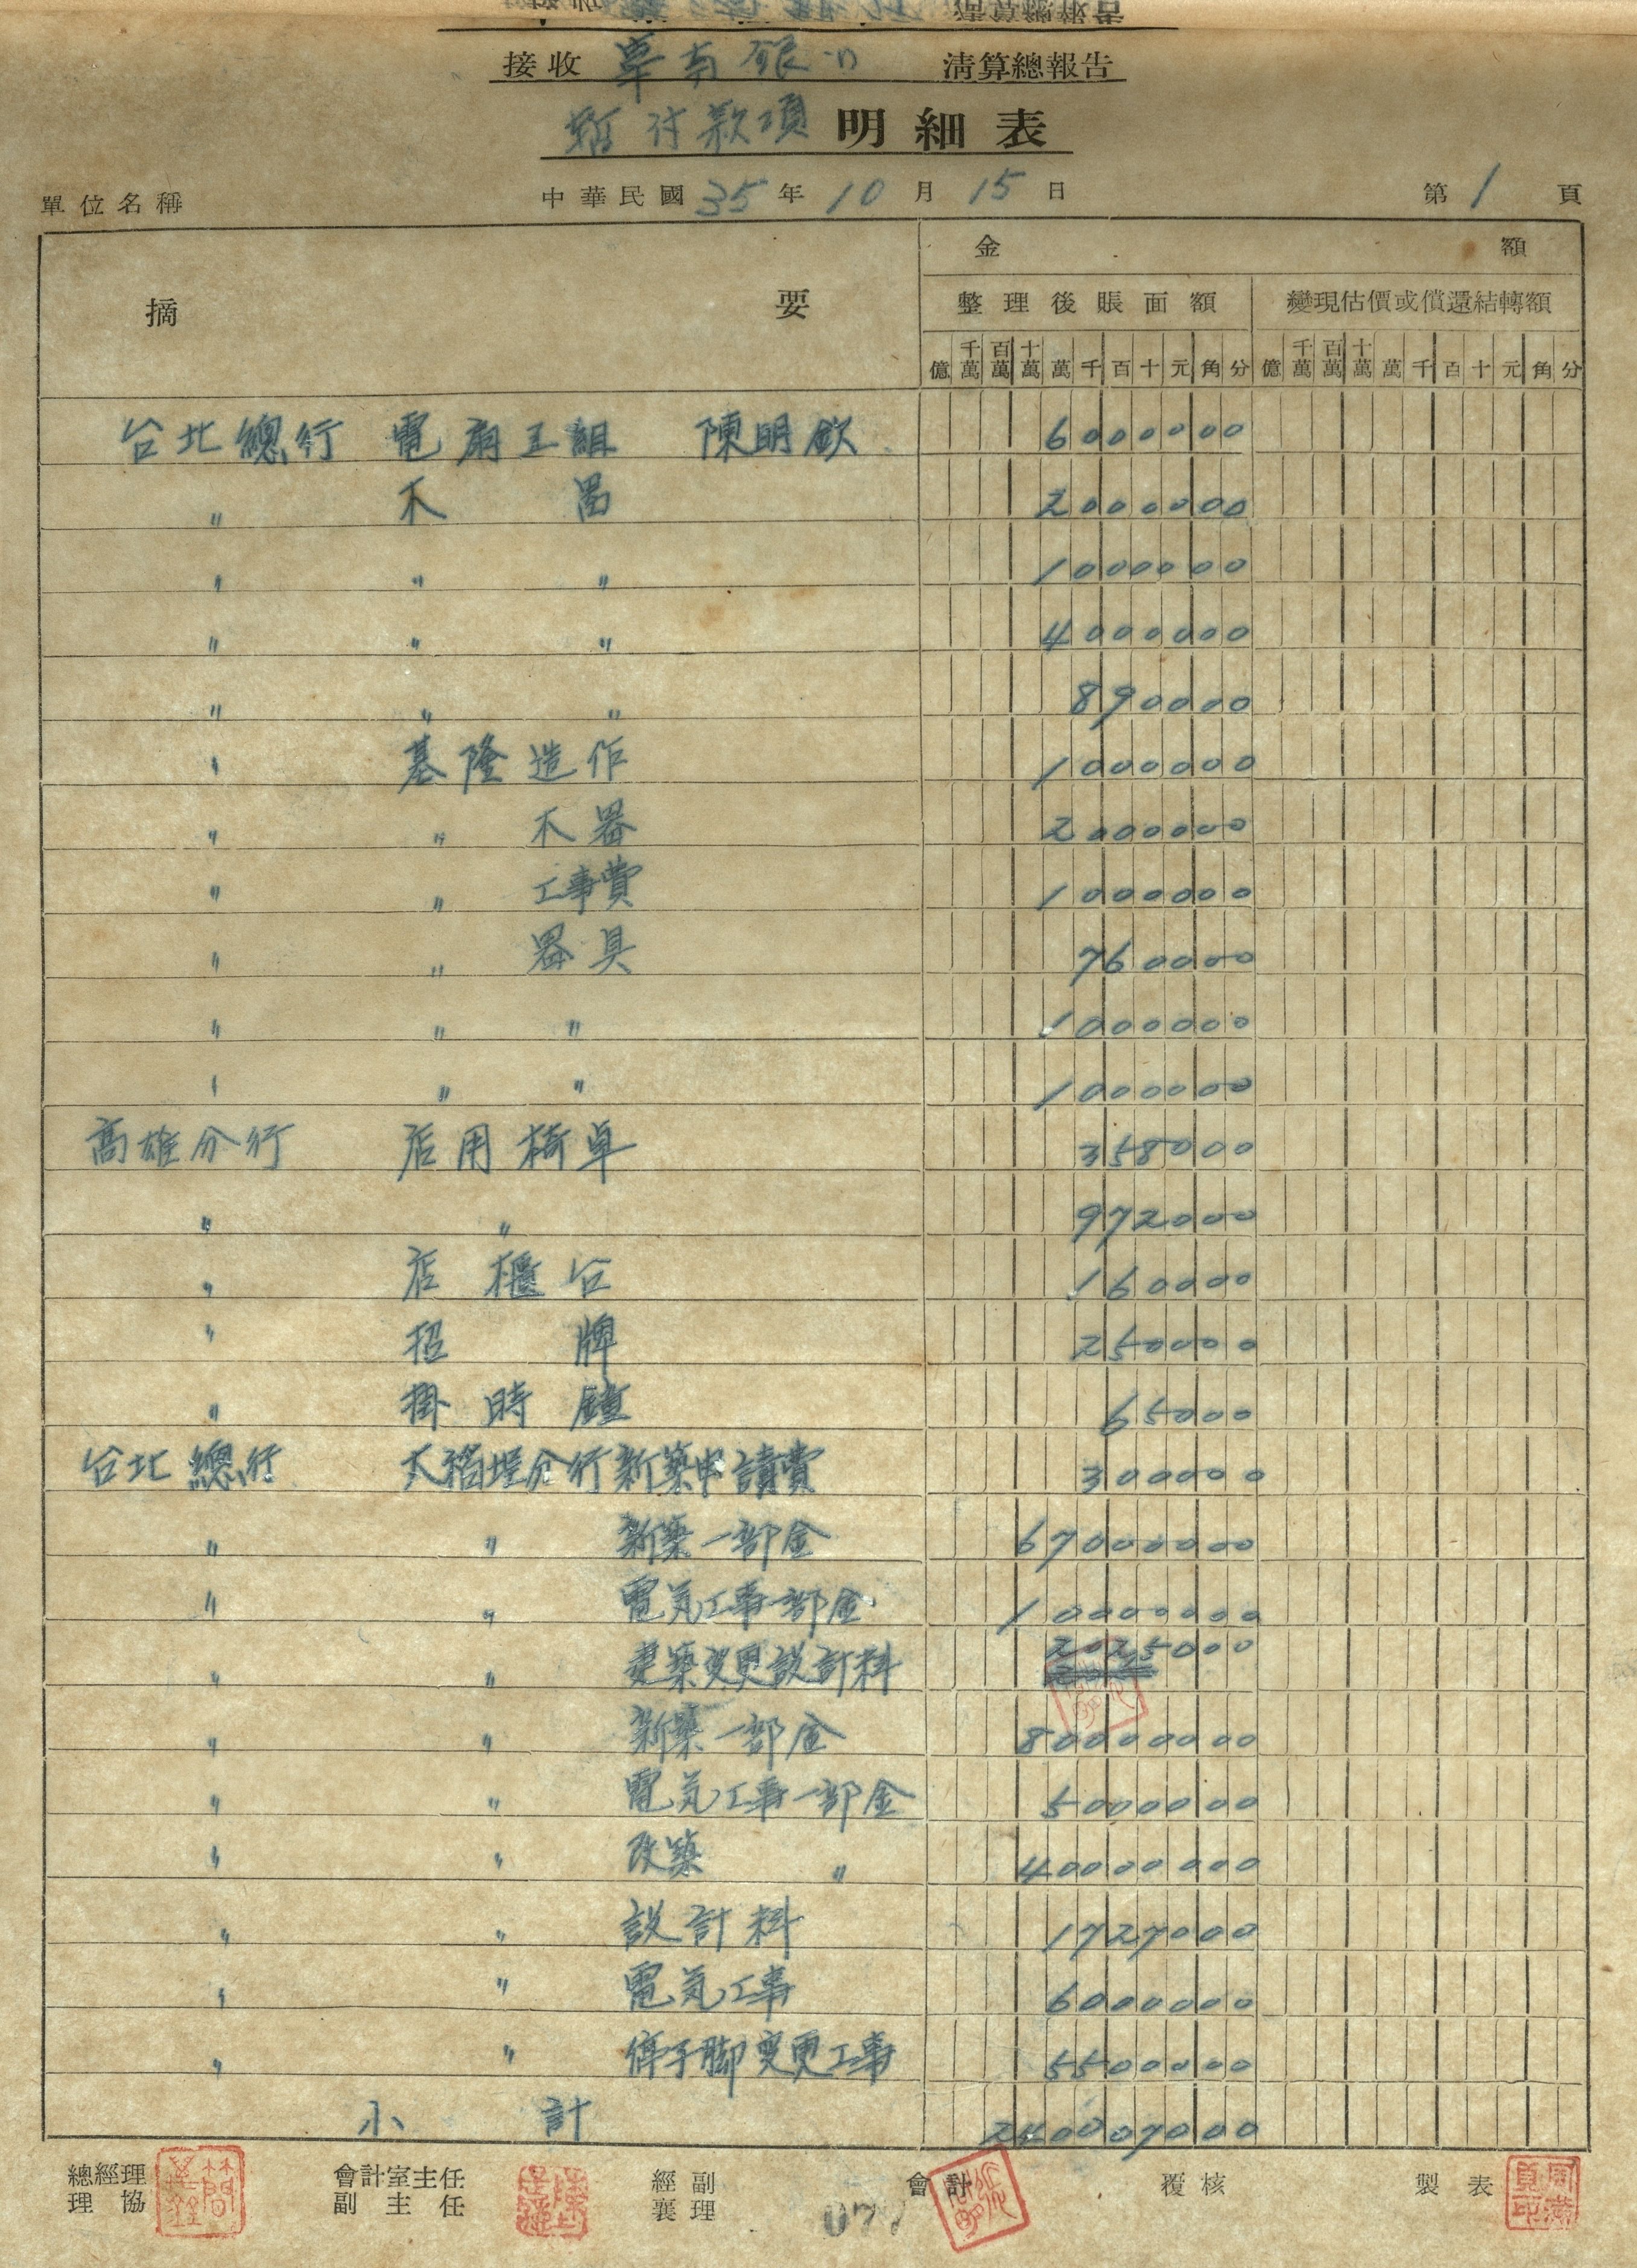 接收 華南銀行 清算總報告
暫付款項 明細表
單位名稱 中華民國 35 年 10 月 15 日 第 1 頁
摘 要 金 額
整理後賬面額 變現估價或償還結轉額
億 千萬 百萬 十萬 萬 千 百 十 元 角 分 億 千萬 百萬 十萬 萬 千 百 十 元 角 分
台北總行 電扇五組 陳明欽 6000000
〃 木器 2000000
〃 〃 〃 1000000
〃 〃 〃 4000000
〃 〃 〃 890000
〃 基隆造作 1000000
〃 〃 木器 2000000
〃 〃 工事費 1000000
〃 〃 器具 760000
〃 〃 〃 1000000
〃 〃 〃 1000000
高雄分行 店用椅卓 358000
〃 〃 972000
〃 店櫃台 160000
〃 招牌 250000
〃 掛時鐘 65000
台北總行 大稻埕分行新築申請費 300000
〃 〃 新築一部金 67000000
〃 〃 電気工事一部金 10000000
〃 〃 建築変更設計料 2025000
〃 〃 新築一部金 80000000
〃 〃 電気工事一部金 5000000
〃 〃 改築 〃 40000000
〃 〃 設計料 1727000
〃 〃 電気工事 6000000
〃 〃 停子脚変更工事 5500000
小計 240007000
總經理 會計室主任 經副 會計 覆核 製表
協理 副主任 襄理